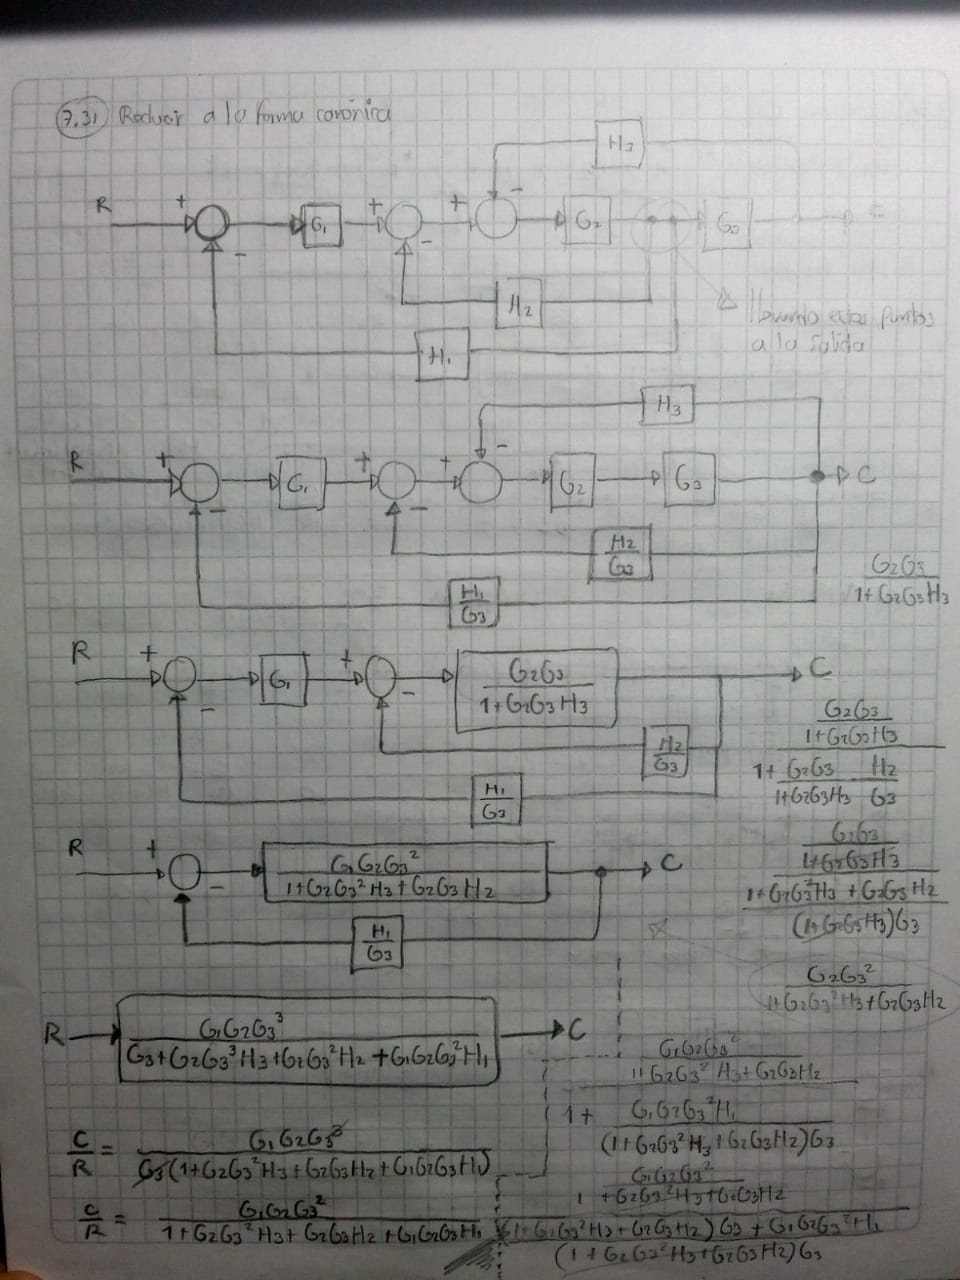 7.31 Reducir a la forma canónica
H3
R + G1 + - + - G2 G3 C
-
H2
llevando estos puntos
a la salida
H1
H3
R + G1 + + - G2 G3 C
- -
H2/G3
G2G3/1+G2G3H3
H1/G3
R + G1 + G2G3/1+G2G3H3 C
- -
H2/G3
H1/G3
G2G3
1+G2G3H3
1+ G2G3 H2
1+G2G3H3 G3
R + - G1G2G3²/1+G2G3²H3+G2G3H2 C
H1/G3
G2G3
1+G2G3H3
1+G2G3²H3+G2G3H2
(1+G2G3H3)G3
G2G3²
1+G2G3²H3+G2G3H2
R G1G2G3³/G3+G2G3³H3+G2G3²H2+G1G2G3²H1 C
G1G2G3²
1+G2G3²H3+G2G3H2
1+ G1G2G3²H1
(1+G2G3²H3+G2G3H2)G3
C/R = G1G2G3³/G3(1+G2G3²H3+G2G3H2+G1G2G3H1)
G1G2G3²
1+G2G3²H3+G2G3H2
C/R = G1G2G3²/1+G2G3²H3+G2G3H2+G1G2G3H1
(1+G2G3²H3+G2G3H2)G3+G1G2G3²H1
(1+G2G3²H3+G2G3H2)G3